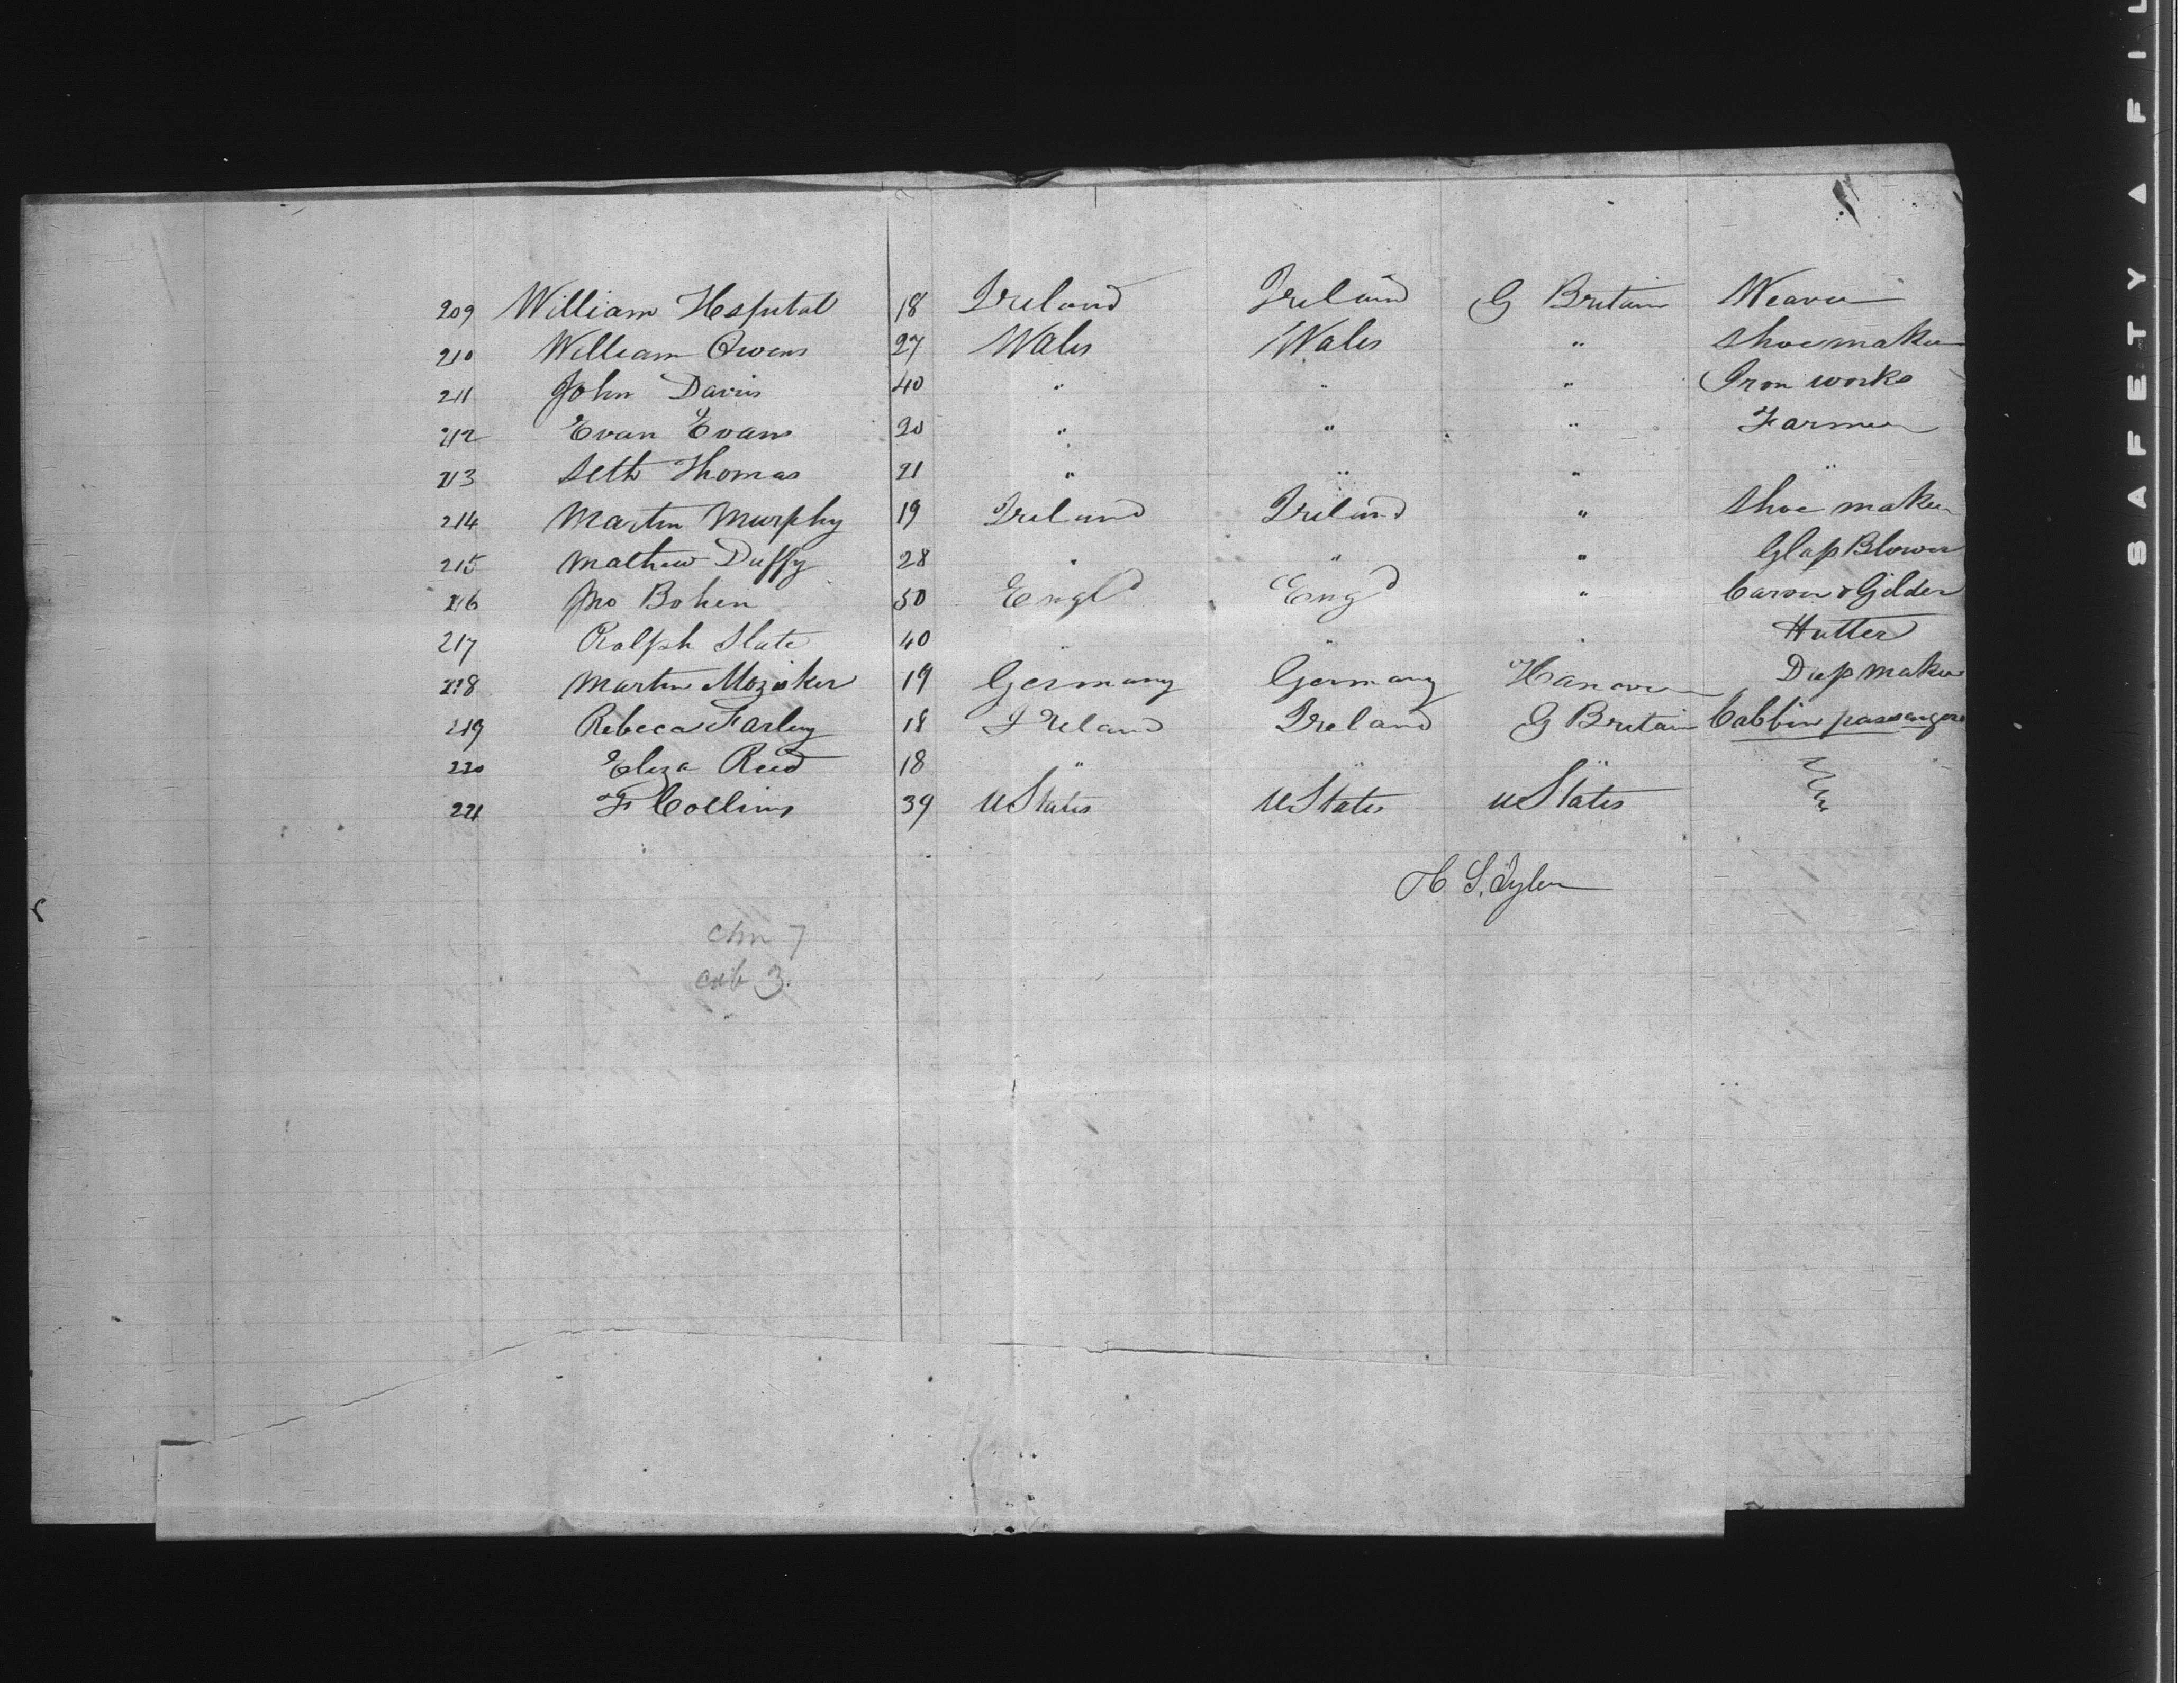 209 William Hospital 18 Ireland Ireland G Britain Weaver
210 William Owens 27 Wales Wales " Shoemaker
211 John Davis 40 " " " Iron works
212 Evan Evans 20 " " " Farmer
213 Seth Thomas 21 " " " "
214 Martin Murphy 19 Ireland Ireland " Shoe maker
215 Mathew Duffy 28 " " " Glass Blower
216 Jno Bohen 50 Engld Engd " Carver & Gilder
217 Ralph Slate 40 " " " Hatter
218 Martin 19 Germany Germany Hanover maker
219 Rebeca Farley 18 Ireland Ireland G Britain Cabbin passangers
220 Eliza Reed 18 " " "
221 F Collins 39 UStates UStates UStates
H S. Tyler
chn 7
cab 3.
SAFETY A FIL